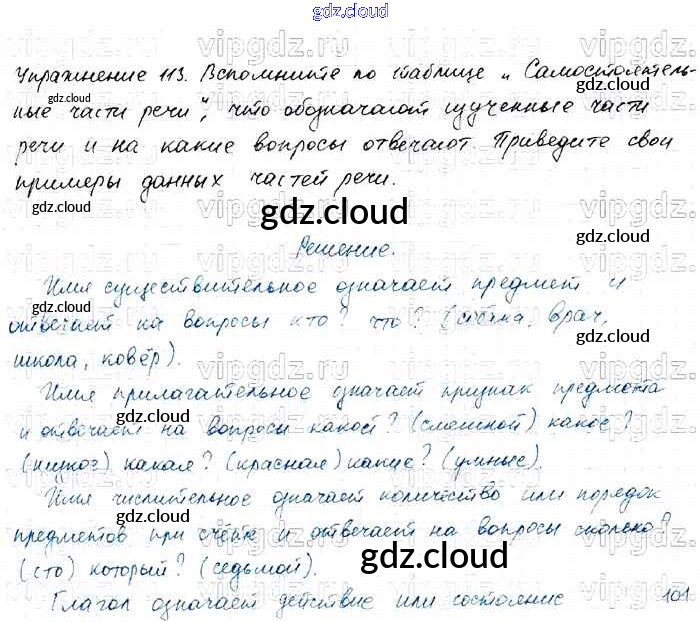 gdz.cloud
Упражнение 113. Вспомните по таблице „Самостоятель-
ные части речи", что обозначают изученные части
речи и на какие вопросы отвечают. Приведите свои
примеры данных частей речи.
Решение.
Имя существительное означает предмет и
отвечает на вопросы кто? что? ( врач,
школа, ковёр).
Имя прилагательное означает признак предмета
и отвечает на вопросы какой? (смешной) какое?
(низкое) какая? (красная) какие? (умные).
Имя числительное означает количество или порядок
предметов при счёте и отвечает на вопросы сколько?
(сто) который? (седьмой).
Глагол означает действие или состояние
101